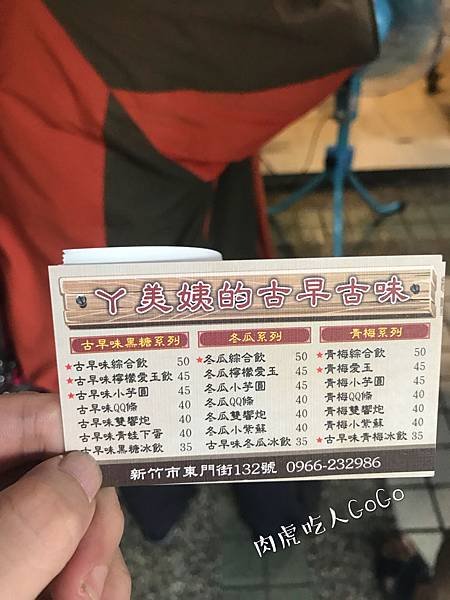 ㄚ美姨的古早古味
古早味黑糖系列
★古早味綜合飲 50
★古早味檸檬愛玉飲 45
★古早味小芋圓 45
古早味QQ條 40
古早味雙響炮 40
古早味青蛙下蛋 40
古早味黑糖冰飲 35
冬瓜系列
★冬瓜綜合飲 50
冬瓜檸檬愛玉 45
冬瓜小芋圓 45
冬瓜QQ條 40
冬瓜雙響炮 40
冬瓜小紫蘇 40
古早味冬瓜冰飲 35
青梅系列
★青梅綜合飲 50
★青梅愛玉 45
青梅小芋圓 45
青梅QQ條 40
青梅雙響炮 40
青梅小紫蘇 40
★古早味青梅冰飲 35
新竹市東門街132號 0966-232986
肉虎吃人GoGo